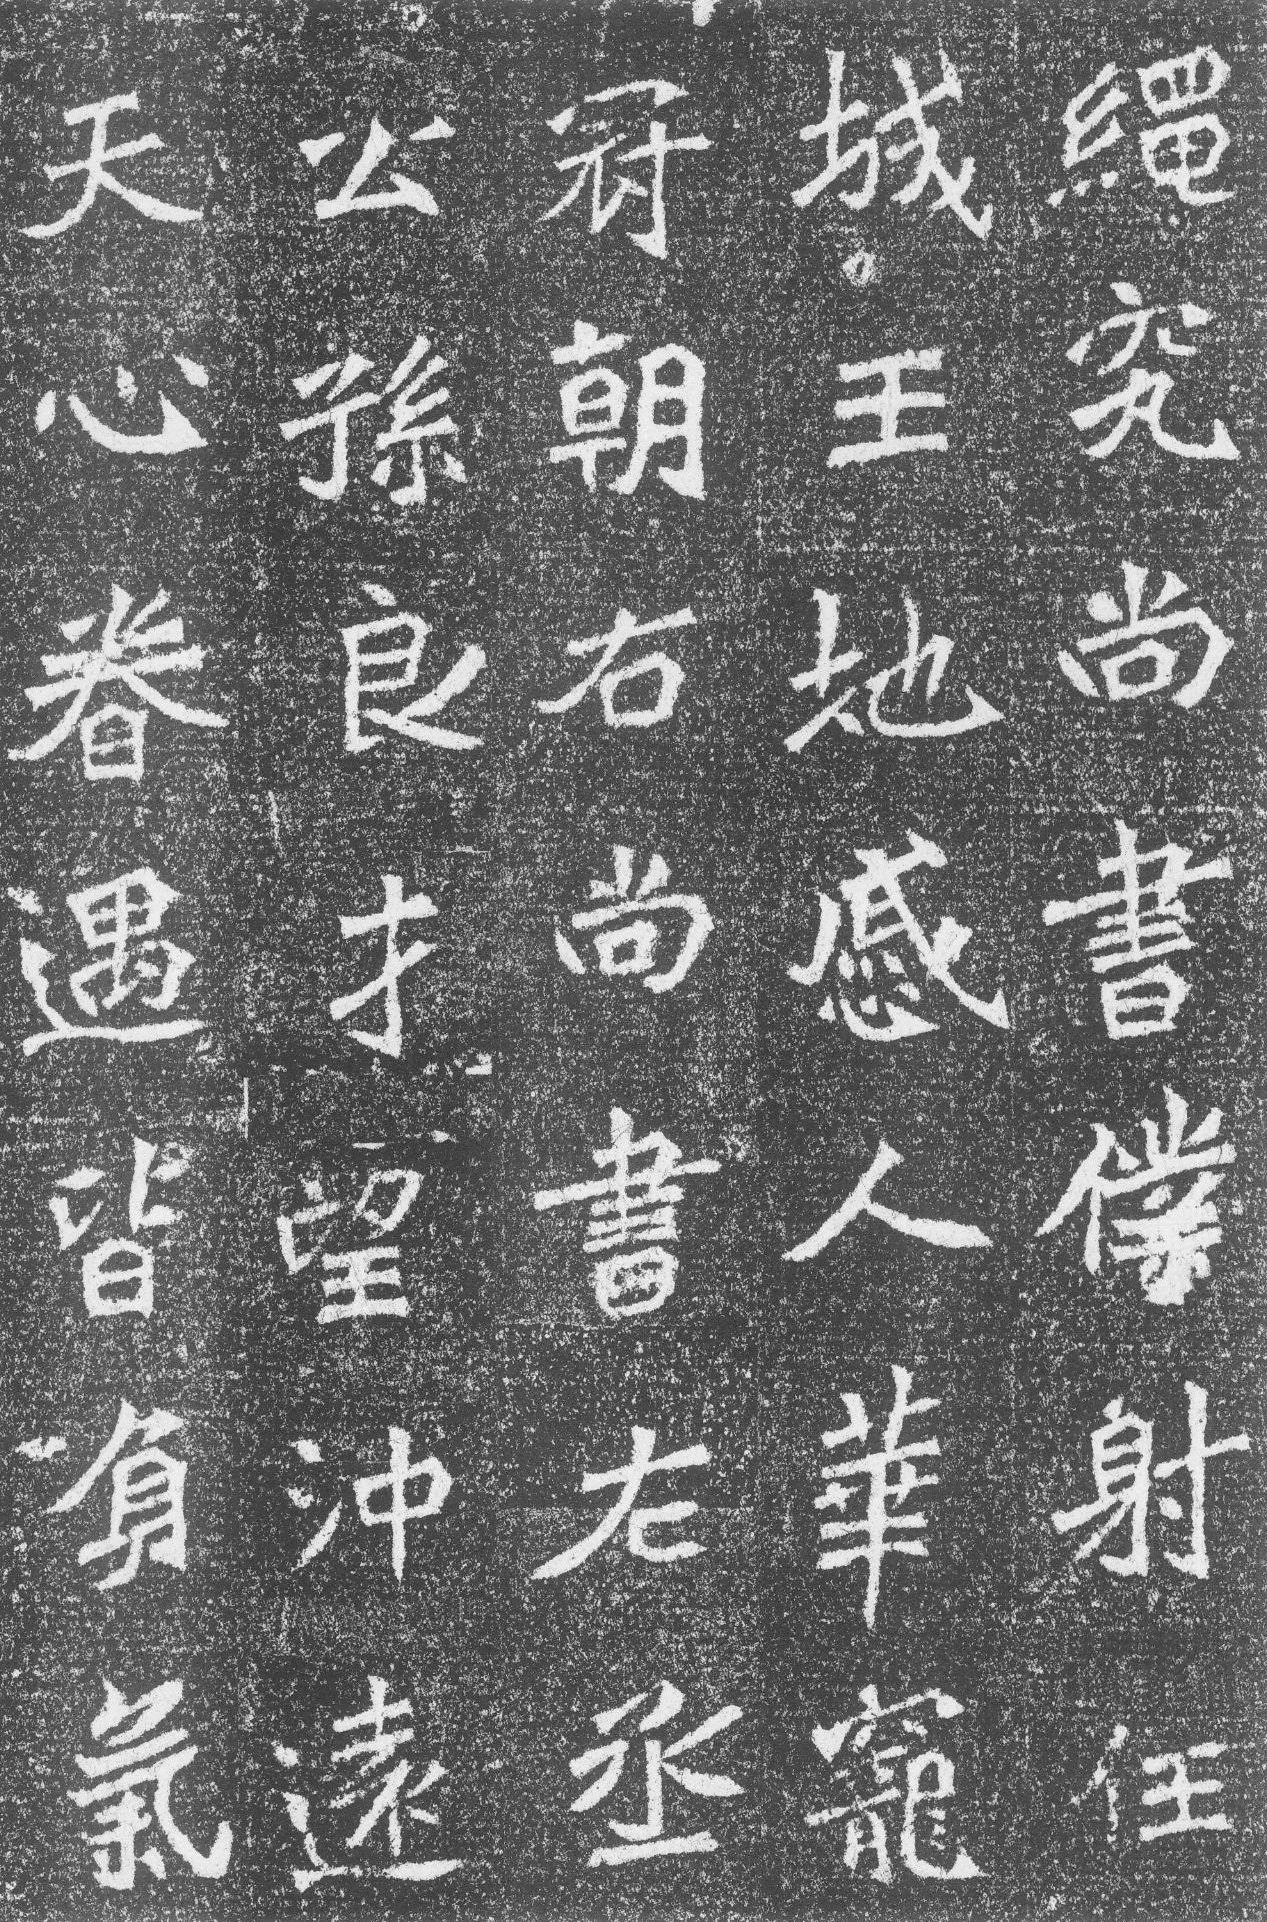 繩究尚書僕射任
城王地感人華寵
冠朝右尚書左丞
公孫良才望沖遠
天心眷遇皆負氣